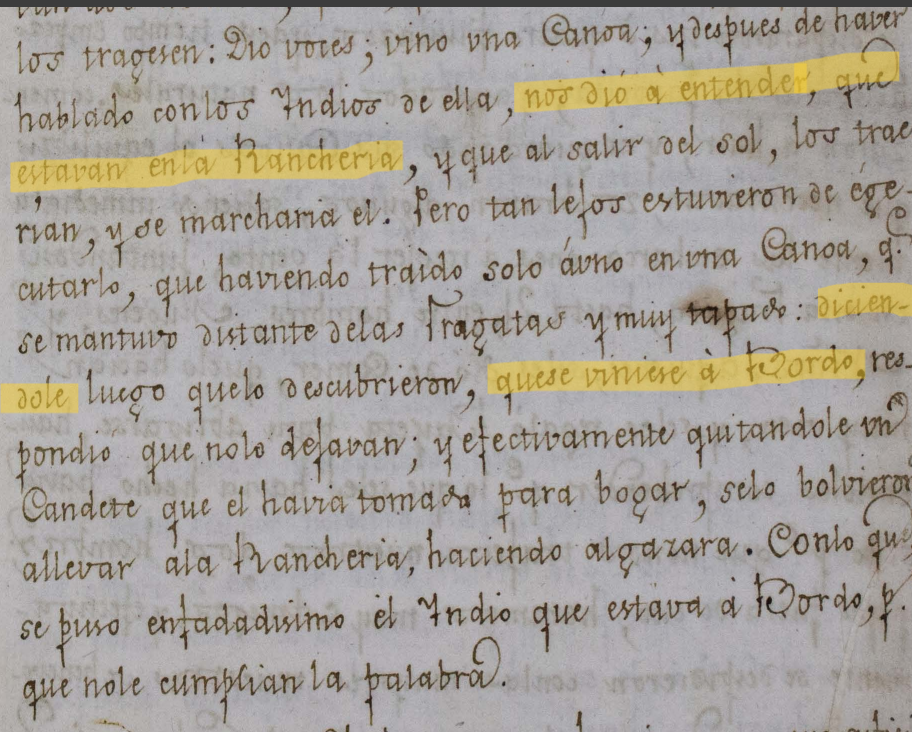 los tragesen: Dio voces; vino vna Canoa; y despues de haver
hablado conlos Indios de ella, nos dió à entender, que
estavan enla Rancheria, y que al salir del sol, los trae
rian, y se marcharia el. Pero tan lejos estuvieron de ége-
cutarlo, que haviendo traìdo solo ávno en vna Canoa, q.^e
se mantuvo distante delas Fragatas y muy tapado: dicien-
dole luego quelo descubrieron, quese viniese à Bordo, res-
pondio que nolo dejavan; y efectivamente quitandole vn
Candete que el havia tomado para bogar, selo bolvieron
allevar ala Rancheria, haciendo algazara. Conlo que
se puso enfadadisimo el Indio que estava à Bordo, p.^r
que nole cumplian la palabra.